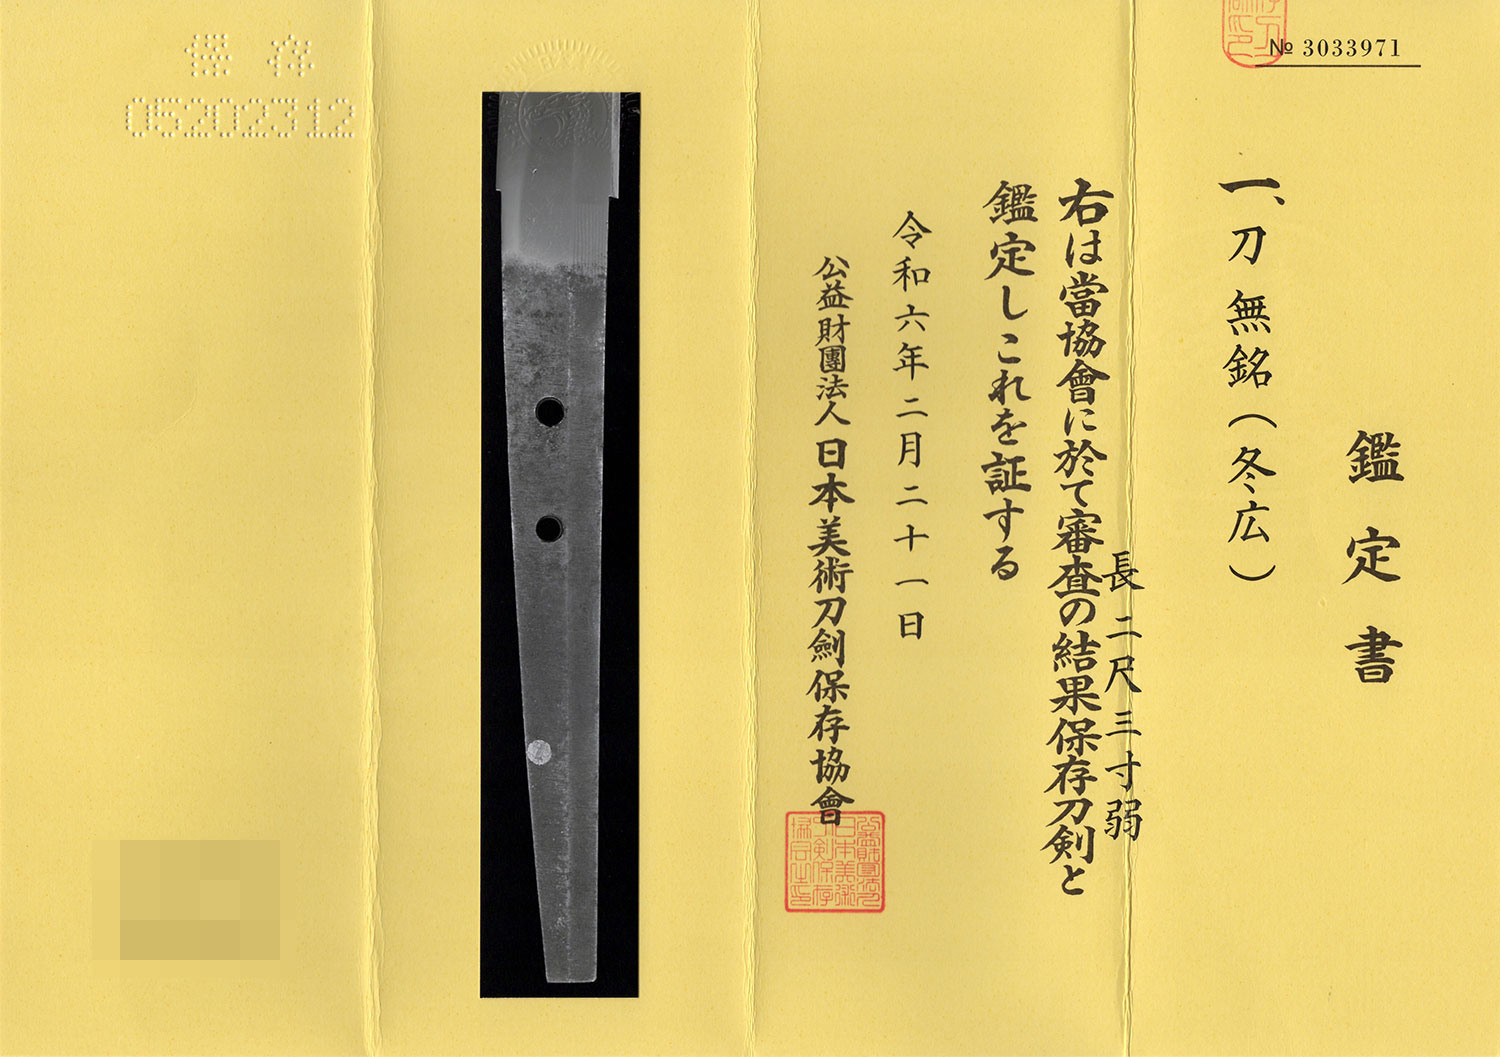 № 3033971
鑑定書
一、刀 無銘(冬広)
長 二尺三寸弱
右は當協會に於て審査の結果保存刀剣と
鑑定しこれを証する
令和六年二月二十一日
公益財團法人 日本美術刀劍保存協會
保存
05202312